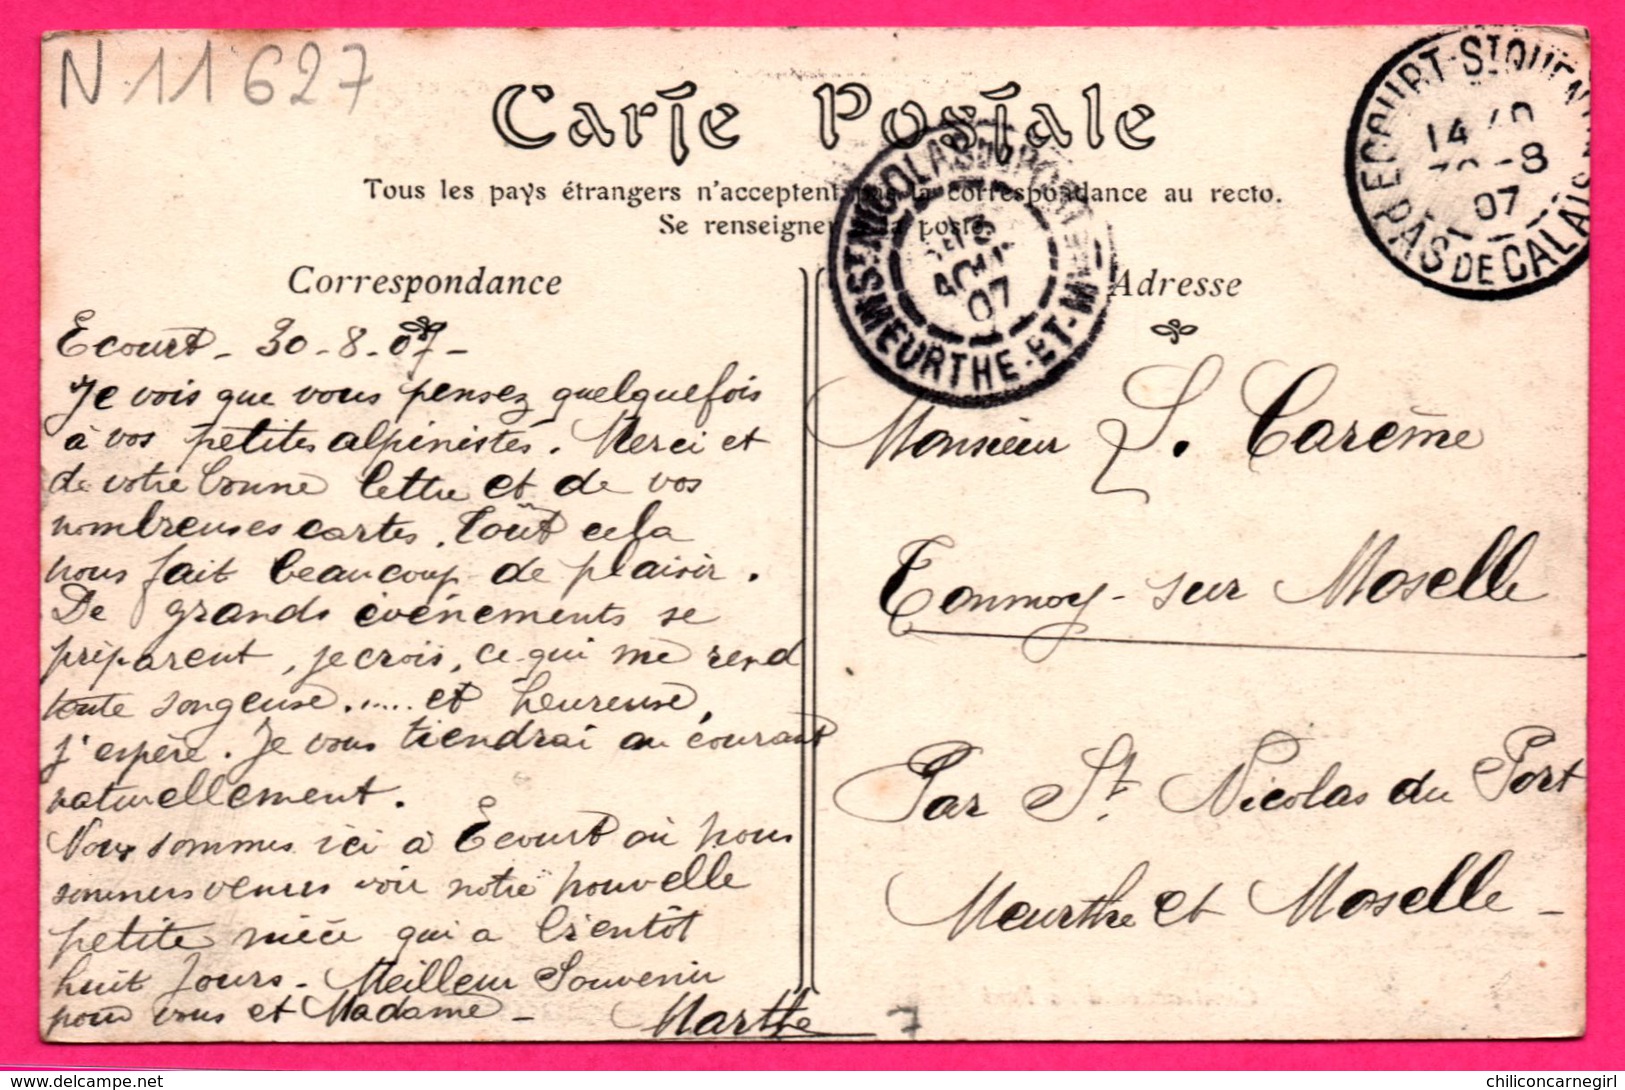 N 11627
Carte Postale
Tous les pays étrangers n'acceptent pas la correspondance au recto.
Se renseigner à la poste.
ECOURT-ST QUENTIN
14 40
30-8
07
PAS DE CALAIS
ST NICOLAS DU PORT
AOUT
07
MEURTHE-ET-MLLE
Correspondance
Ecourt - 30-8-07-
Je vois que vous pensez quelquefois
à vos petites alpinistes. Merci et
de votre bonne lettre et de vos
nombreuses cartes. Tout cela
nous fait beaucoup de plaisir.
De grands évènements se
préparent, je crois, ce qui me rend
toute songeuse...... et heureuse,
j'espère. Je vous tiendrai au courant
naturellement.
Nous sommes ici à Ecourt où nous
sommes venues voir notre nouvelle
petite nièce qui a bientôt
huit jours. Meilleur Souvenir
pour vous et Madame -
Marthe
Adresse
Monsieur L. Carème
Tonnoy-sur Moselle
Par St. Nicolas du Port
Meurthe et Moselle -
7
chiliconcarnegirl